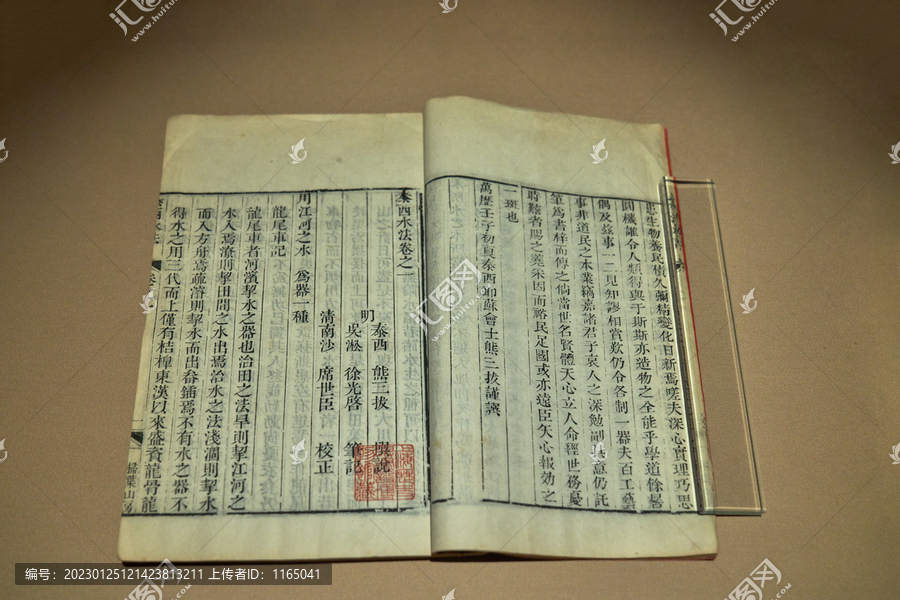 思生物養民積久彌精變化日新焉嗟夫深心實理巧思
圓機誰令人類得與于斯斯亦造物之全能乎學道餘晷
偶及茲事一二見知謬相賞歎仍令各制一器夫百工藝
事非道民之本業竊嘉諸君子哀人之深勉副
意仍託
筆為書梓而傳之倘當世名賢體天心立人命經世務憂
時艱者賜之采因而裕民足國或亦遠臣矢心報效之
一斑也
萬曆壬子初夏泰西耶蘇會士熊三拔謹譔
泰西水法卷之一
泰西 熊三拔 譔說
明
吳淞 徐光啓 筆記
清南沙 席世臣 校正
用江河之水 為器一種
龍尾車記
龍尾車者河濱挈水之器也治田之法旱則挈江河之
水入焉潦則挈田間之水出焉治水之法淺涸則挈水
而入方舟焉疏濬則挈水而出畚鍤焉不有水之器不
得水之用三代而上僅有桔槹東漢以來盛資龍骨龍
掃葉山房
汇图网
www.huitu.com
编号：20230125121423813211 上传者ID：1165041